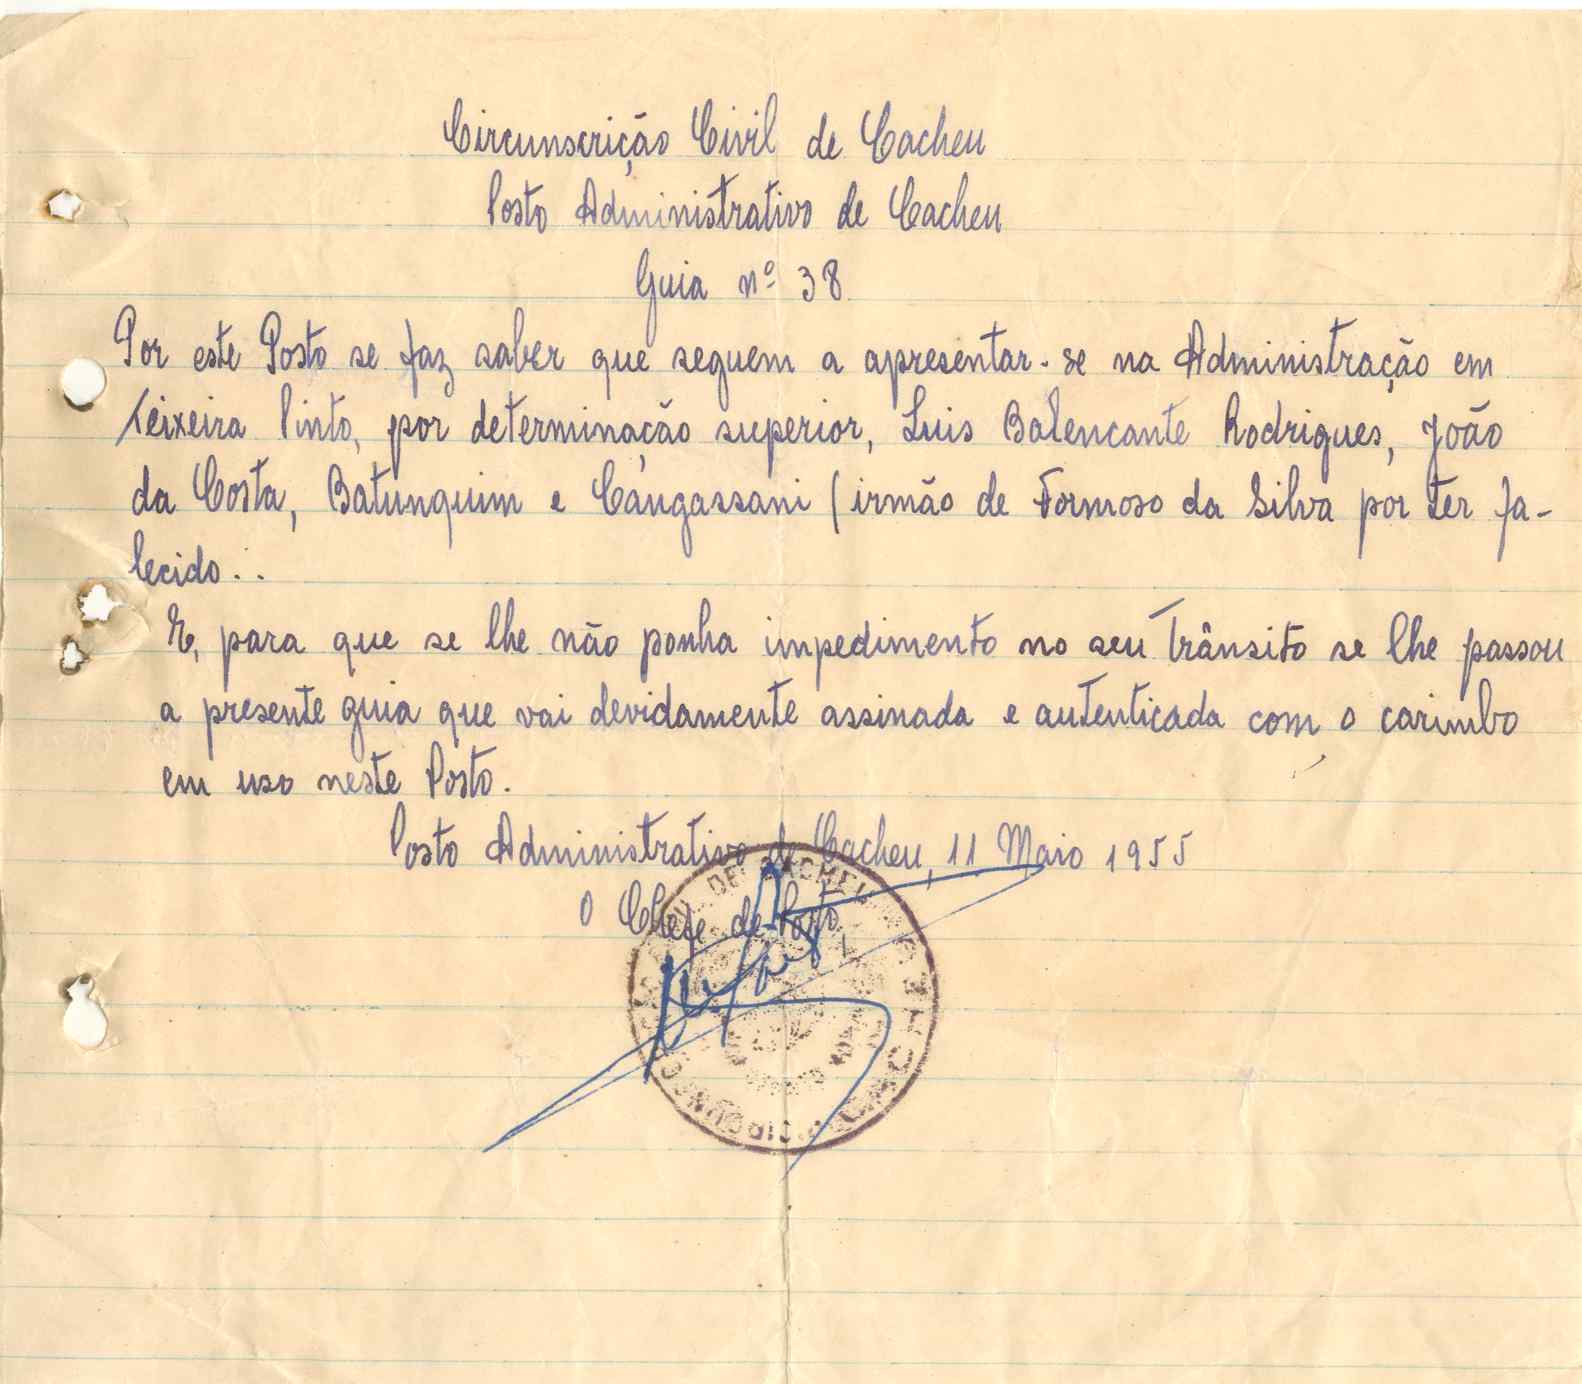 Circunscrição Civil de Cacheu
Posto Administrativo de Cacheu
Guia nº 38
Por este Posto se faz saber que seguem a apresentar-se na Administração em
Teixeira Pinto, por determinação superior, Luis Balencante Rodrigues, João
da Costa, Batunquim e Cangassani (irmão de Formoso da Silva por ter fa-
lecido..
E, para que se lhe não ponha impedimento no seu trânsito se lhe passou
a presente guia que vai devidamente assinada e autenticada com o carimbo
em uso neste Posto.
Posto Administrativo de Cacheu, 11 Maio 1955
O Chefe de Posto,
DE CACHEU
CIRCUNSC